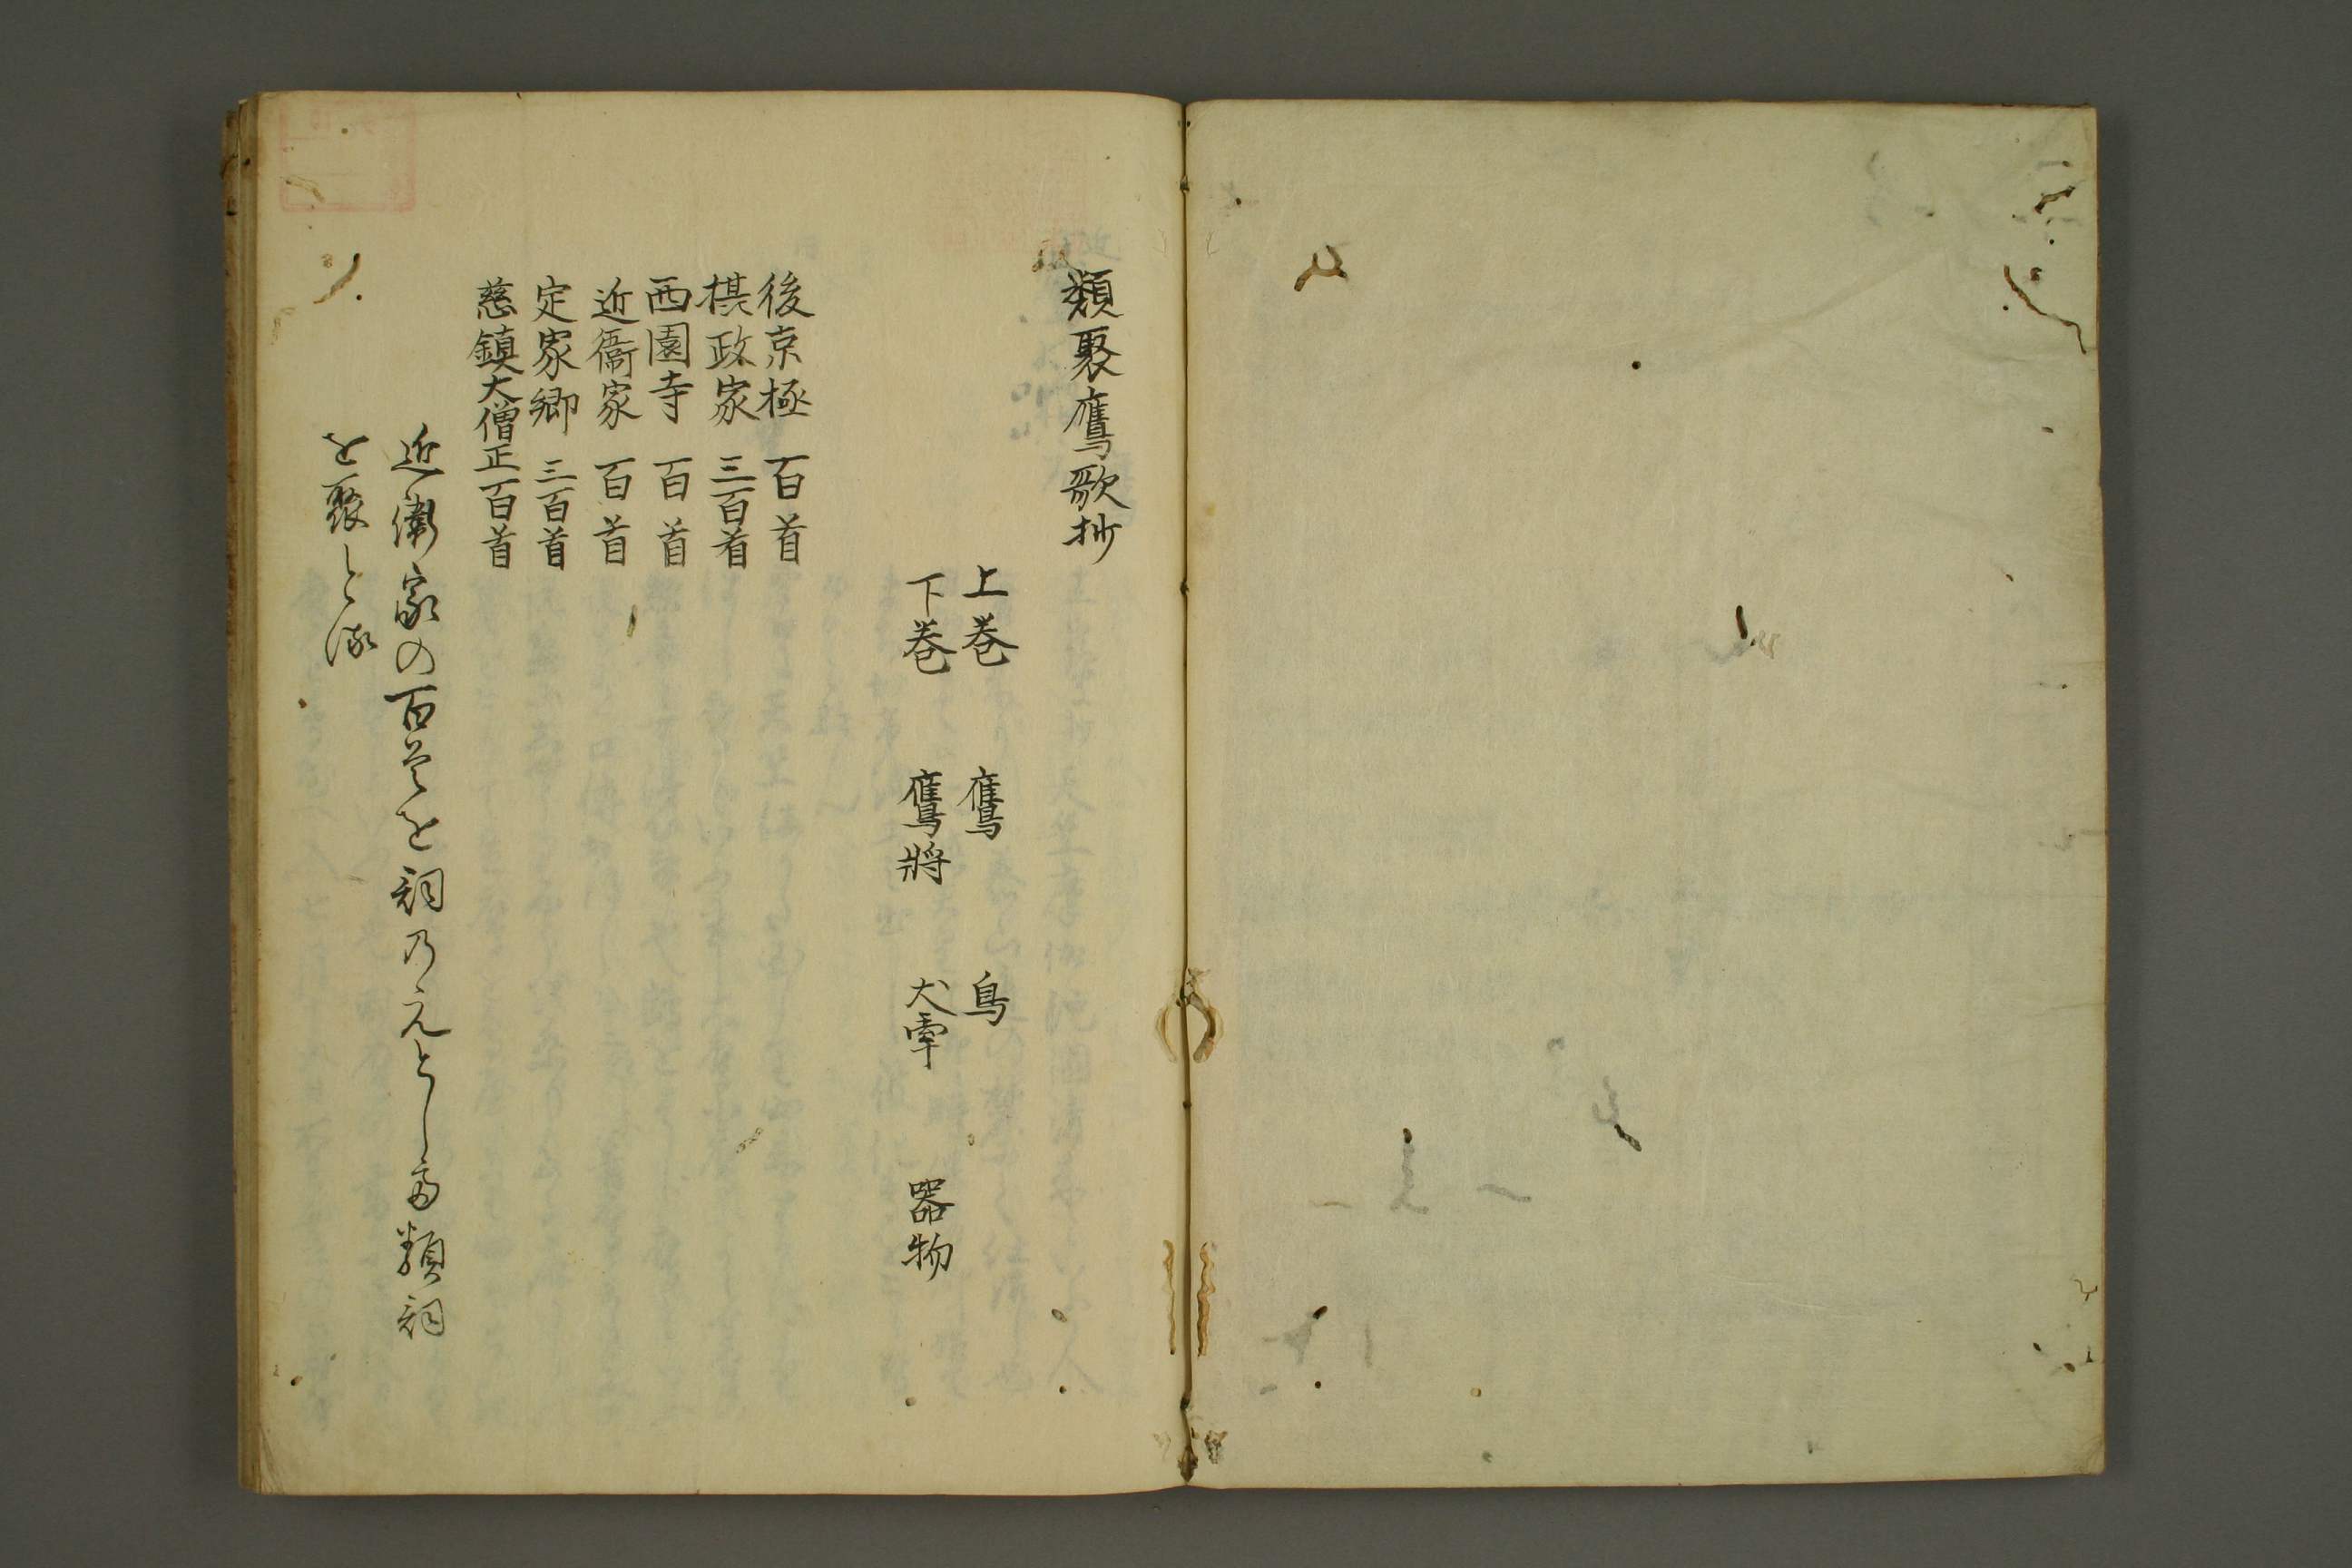 類聚鷹歌抄
上巻 鷹 鳥
下巻 鷹将 犬牽 器物
後京極 百首
棋政家 三百首
西園寺 百首
近衞家 百首
定家卿 三百首
慈鎮大僧正百首
近衛家の百首を詞乃元とし而類詞
を聚とす